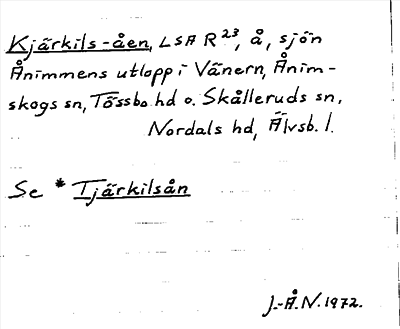 Kjärkils-åen, LSA R²³, å, sjön
Ånimmens utlopp i Vänern, Ånim-
skogs sn, Tössbo hd o. Skålleruds sn,
Nordals hd, Älvsb. l.
Se * Tjärkilsån
J.-Å.N. 1972.